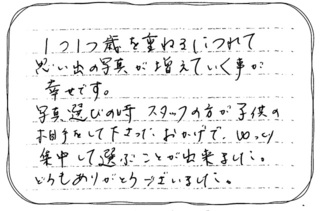 1つ1つ歳を重ねるにつれて
思い出の写真が増えていく事が
幸せです。
写真選びの時 スタッフの方が子供の
相手をして下さったおかげで、ゆっくり
集中して選ぶことが出来ました。
どうもありがとうございました。